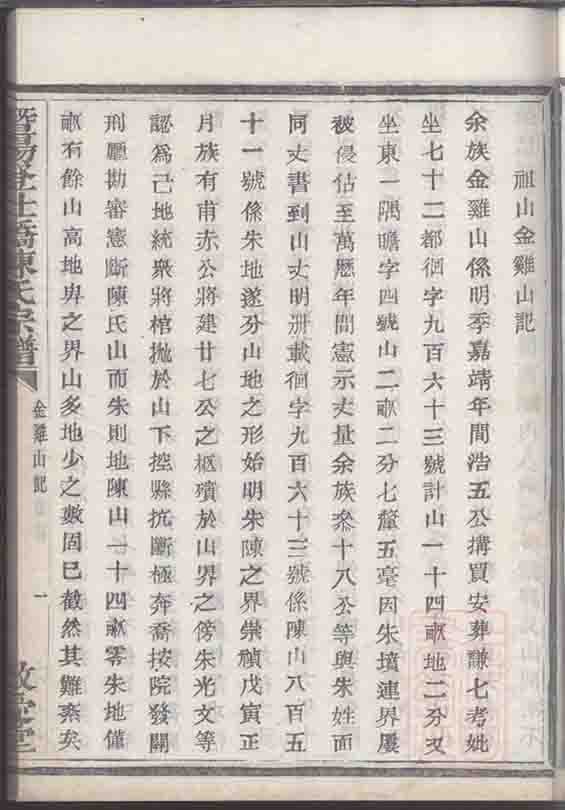 祖山金雞山記
余族金雞山係明季嘉靖年間浩五公搆買安葬謙七考妣
坐七十二都徊字九百六十三號計山一十四畝地二分又
坐東一隅瞻字四號山二畝二分七釐五毫因朱墳連界屢
被侵佔至萬曆年間憲示丈量余族叅十八公等與朱姓面
同丈書到山丈明册載徊字九百六十三號係陳山八百五
十一號係朱地遂分山地之形始明朱陳之界崇禎戊寅正
月族有甫赤公將建廿七公之柩殯於山界之傍朱光文等
認爲己地統衆將棺拋於山下控縣抗斷極奔喬按院發關
刑廳勘審憲斷陳氏山而朱則地陳山一十四畝零朱地僅
畝有餘山高地卑之界山多地少之數固已截然其難紊矣
暨陽 橋陳氏宗譜
金雞山記
一
敘 堂